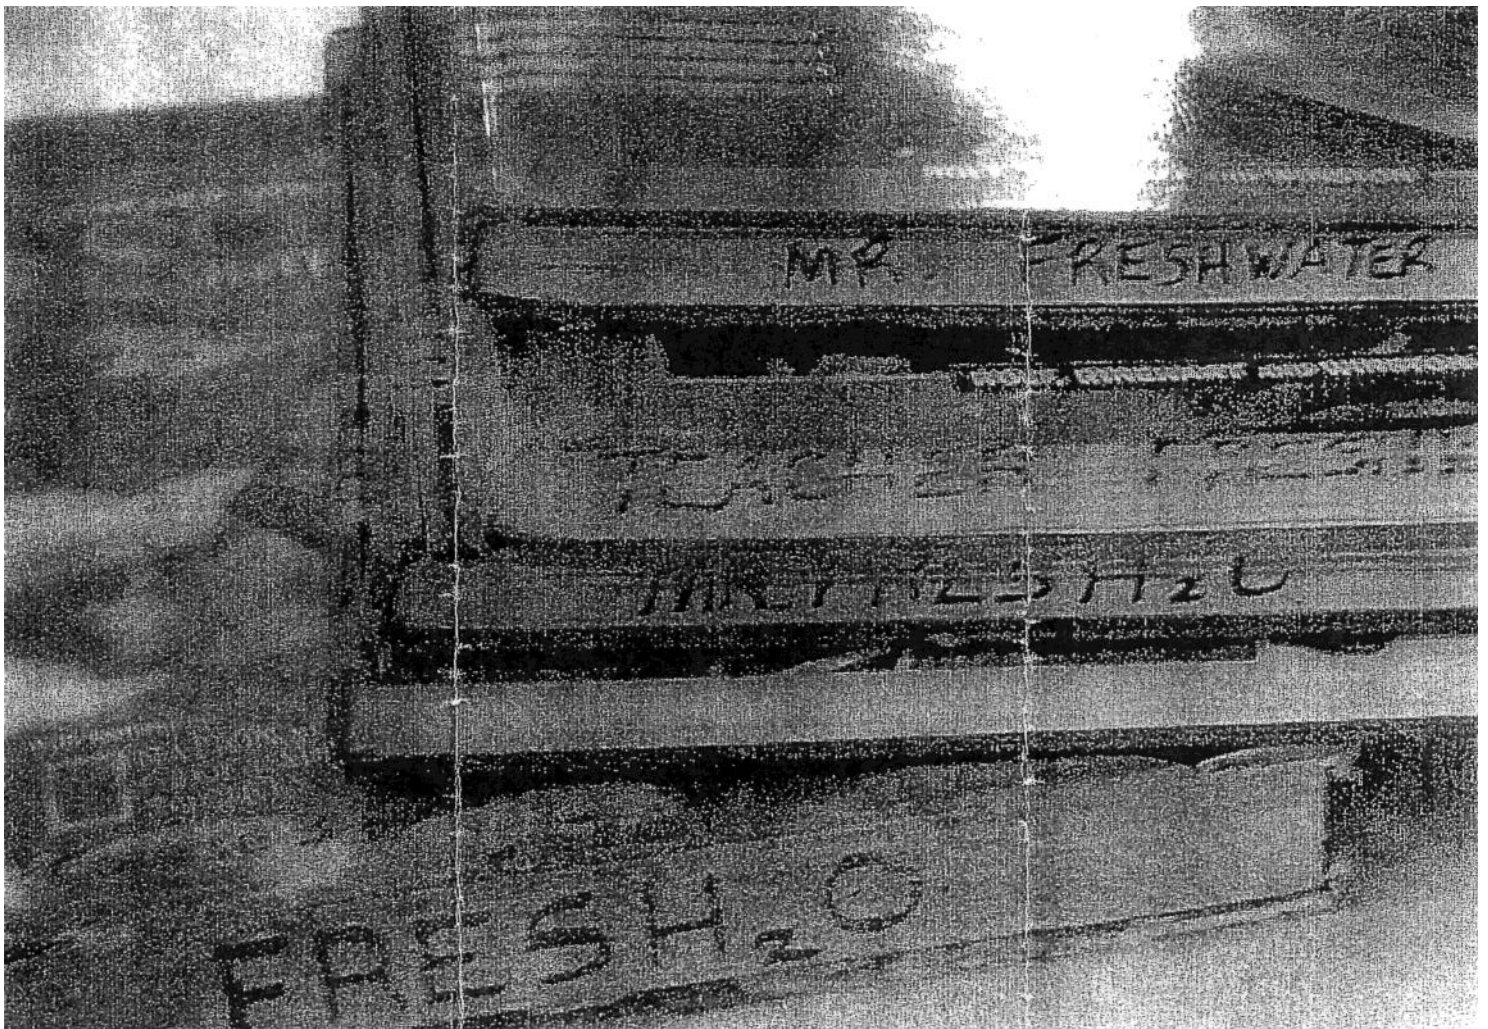 MR. FRESHWATER
TEACHER FRESH
MR. FRESH₂O
FRESH₂O